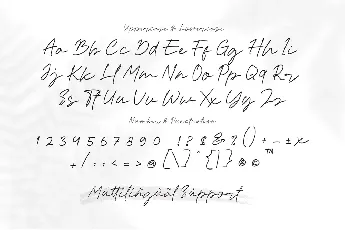 Uppercase & Lowercase
Aa Bb Cc Dd Ee Ff Gg Hh Ii
Jj Kk Ll Mm Nn Oo Pp Qq Rr
Ss Tt Uu Vv Ww Xx Yy Zz
Number & Punctuation
1 2 3 4 5 6 7 8 9 0 ! ? $ & % ( ) + - ± × ™
+ / : = < = > @ [ \ ] ^ { | } ® ©
Multilingual Support